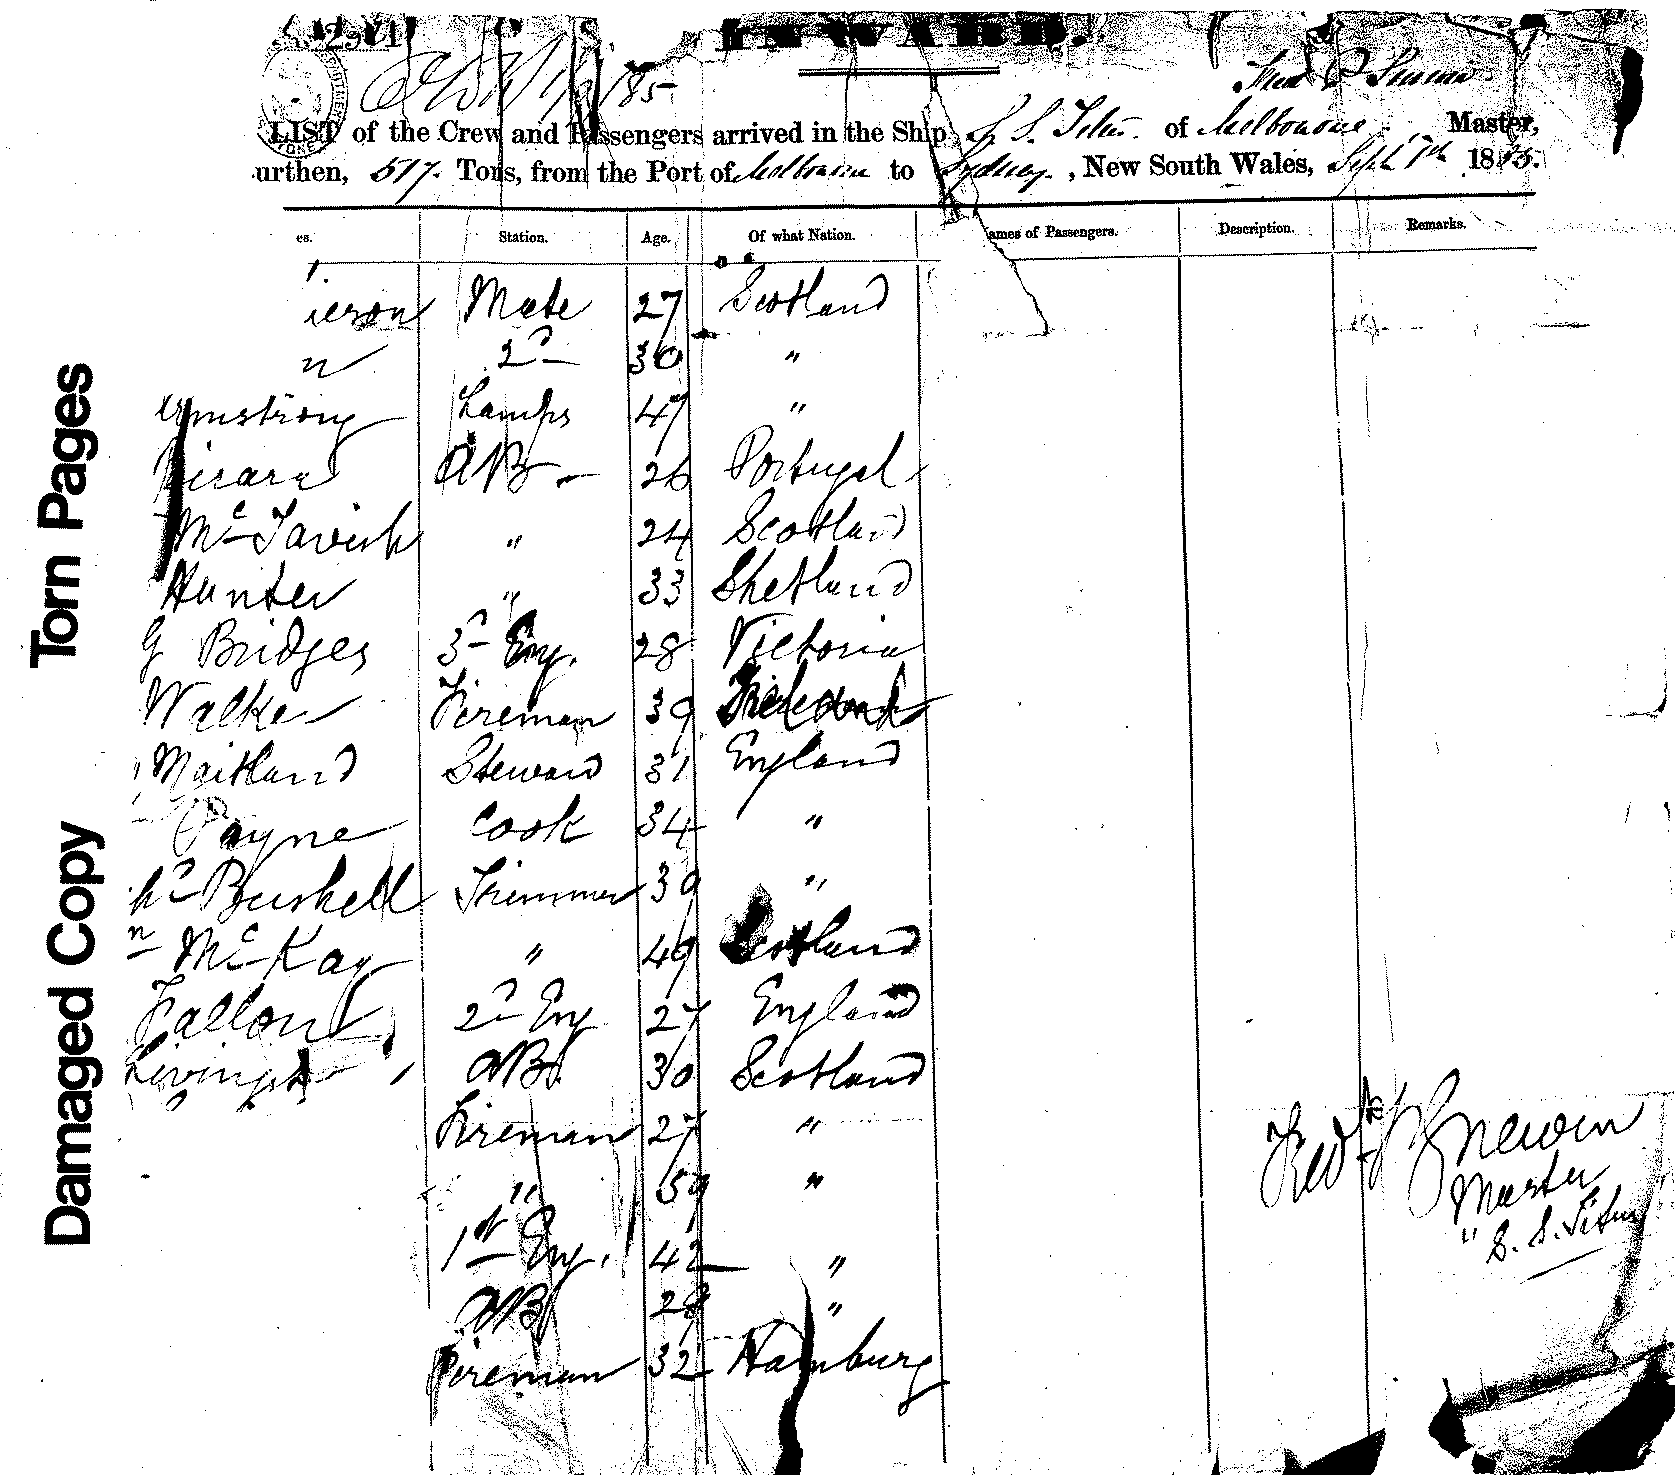 INWARD.
LIST of the Crew and Passengers arrived in the Ship S. S. of Melbourne Master,
urthen, 517 Tons, from the Port of Melbourne to Sydney, New South Wales, Sept 7th 1885.
es. Station. Age. Of what Nation. ames of Passengers. Description. Remarks.
ierson Mate 27 Scotland
n 2d 30 "
Armstrong Lamps 47 "
AB 26 Portugal
McTavish " 24 Scotland
Hunter " 33 Shetland
G Bridges 3d Eng. 28 Victoria
Walker Fireman 39
Maitland Steward 31 England
Payne Cook 34 "
Bushell Trimmer 39 "
n McKay " 49 Scotland
Fallon 2d Eng 27 England
AB 30 Scotland
Fireman 27 "
" 59 "
1st Eng. 42 "
AB 28 "
Fireman 32 Hamburg
Fred
Master
" S. S.
Torn Pages
Damaged Copy